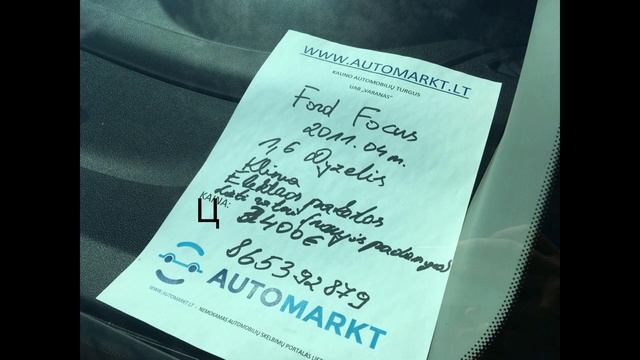 WWW.AUTOMARKT.LT
KAUNO AUTOMOBILIŲ TURGUS
UAB „VARANAS"
Ford Focus
2011.04 m.
1,6 Dyzelis
Klima
Elektros paketas
KAINA:
Ц
2400€
865392879
AUTOMARKT
WWW.AUTOMARKT.LT - NEMOKAMAS AUTOMOBILIŲ SKELBIMŲ PORTALAS